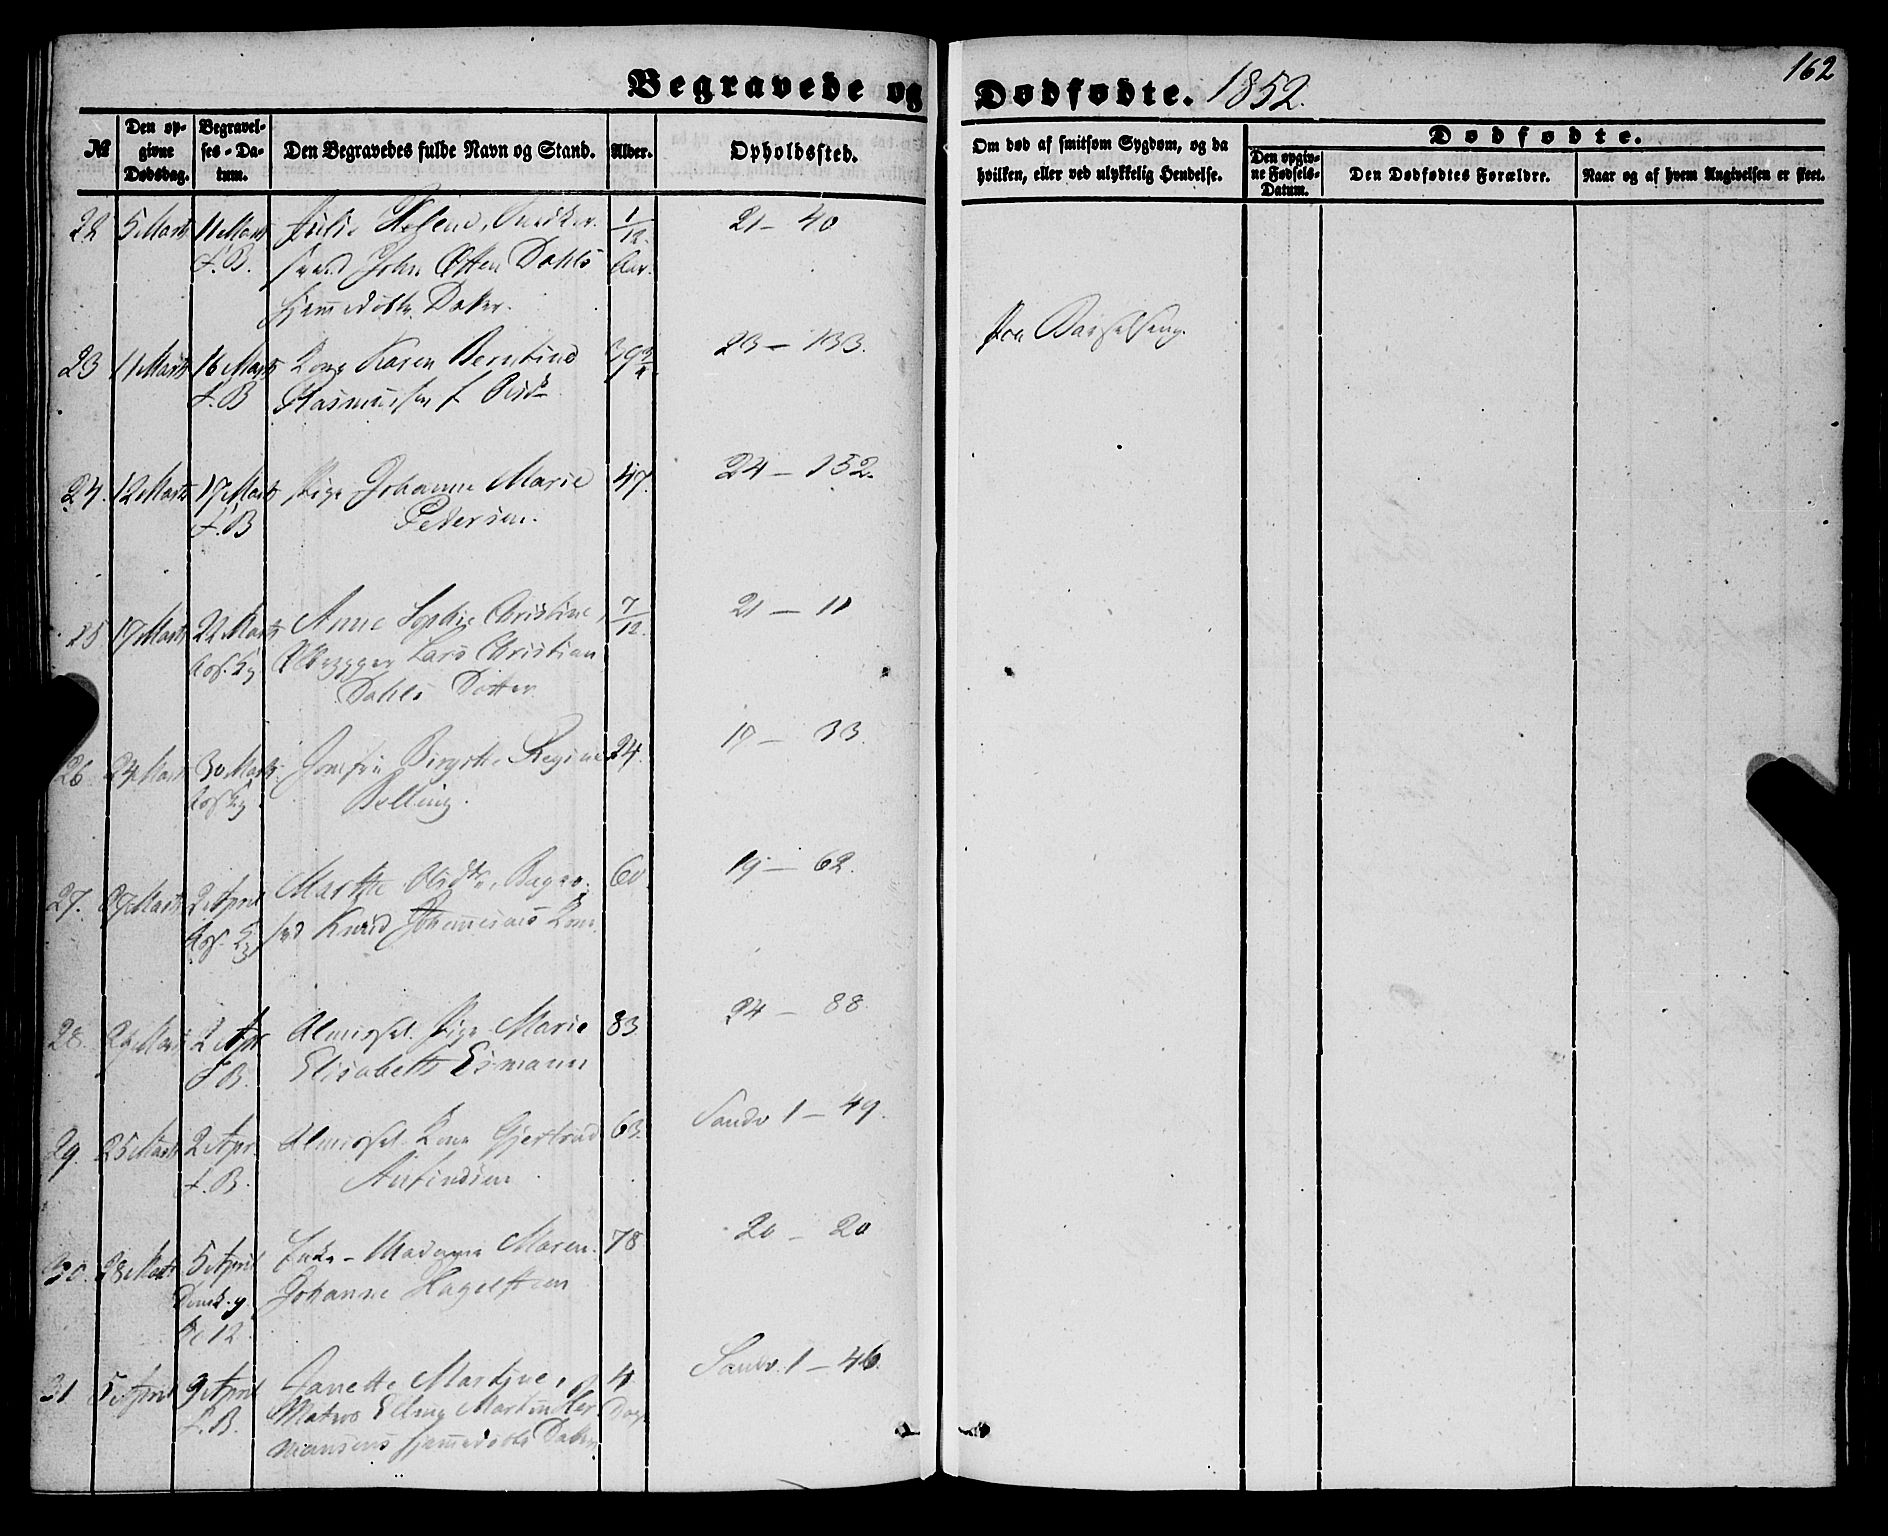 162
Begravede og Dødfødte. 1852.
№
Den opgivne Dødsdag.
Begravelses-Datum.
Den Begravedes fulde Navn og Stand.
Alder.
Opholdssted.
Om død af smitsom Sygdom, og da hvilken, eller ved ulykkelig Hendelse.
Dødfødte.
Den opgivne Fødsels-Datum.
Den Dødfødtes Forældre.
Naar og af hvem Angivelsen er skeet.
22 5 Marts 11 Marts Julie Helene, 1/12 21 – 40
F.B. John Otten Dahls Aar.
hjemmedøbte Datter.
23 11 Marts 16 Marts Kone Karen Berntine 39 3/4 23 – 133.
F.B. Rasmussen f.
24. 12 Marts 17 Marts Pige Johanne Marie 47. 24 – 152.
F.B Pedersen.
25 17 Marts 22 Marts Anne Sophie Christine, 7/12. 21 – 11
Lars Christian
Dahls Datter
26 24 Marts 30 Marts Jomfru Regine 24. 19 – 33.
Belling.
27. 27 Marts 2 April Marthe 60. 19 – 62.
Knud Johannesens Kone.
28. 2 Apr Pige Marie 83 24 – 88.
F.B. Elisabeth Esmann
29. 25 Marts 2 Apr. Kone Gjertrud 63. Sandv. 1 – 49.
F.B.
30. 28 Marts 5 April Enke-Madame Maren 78 20 – 20
Domk. Johanne Hagelsteen
Kl 12
31 5 April 9 April Janette Martine, 4 Sandv. 1 – 46.
F.B. Matros Elling Martin Her Dage
mansens hjemmedøbte Datter